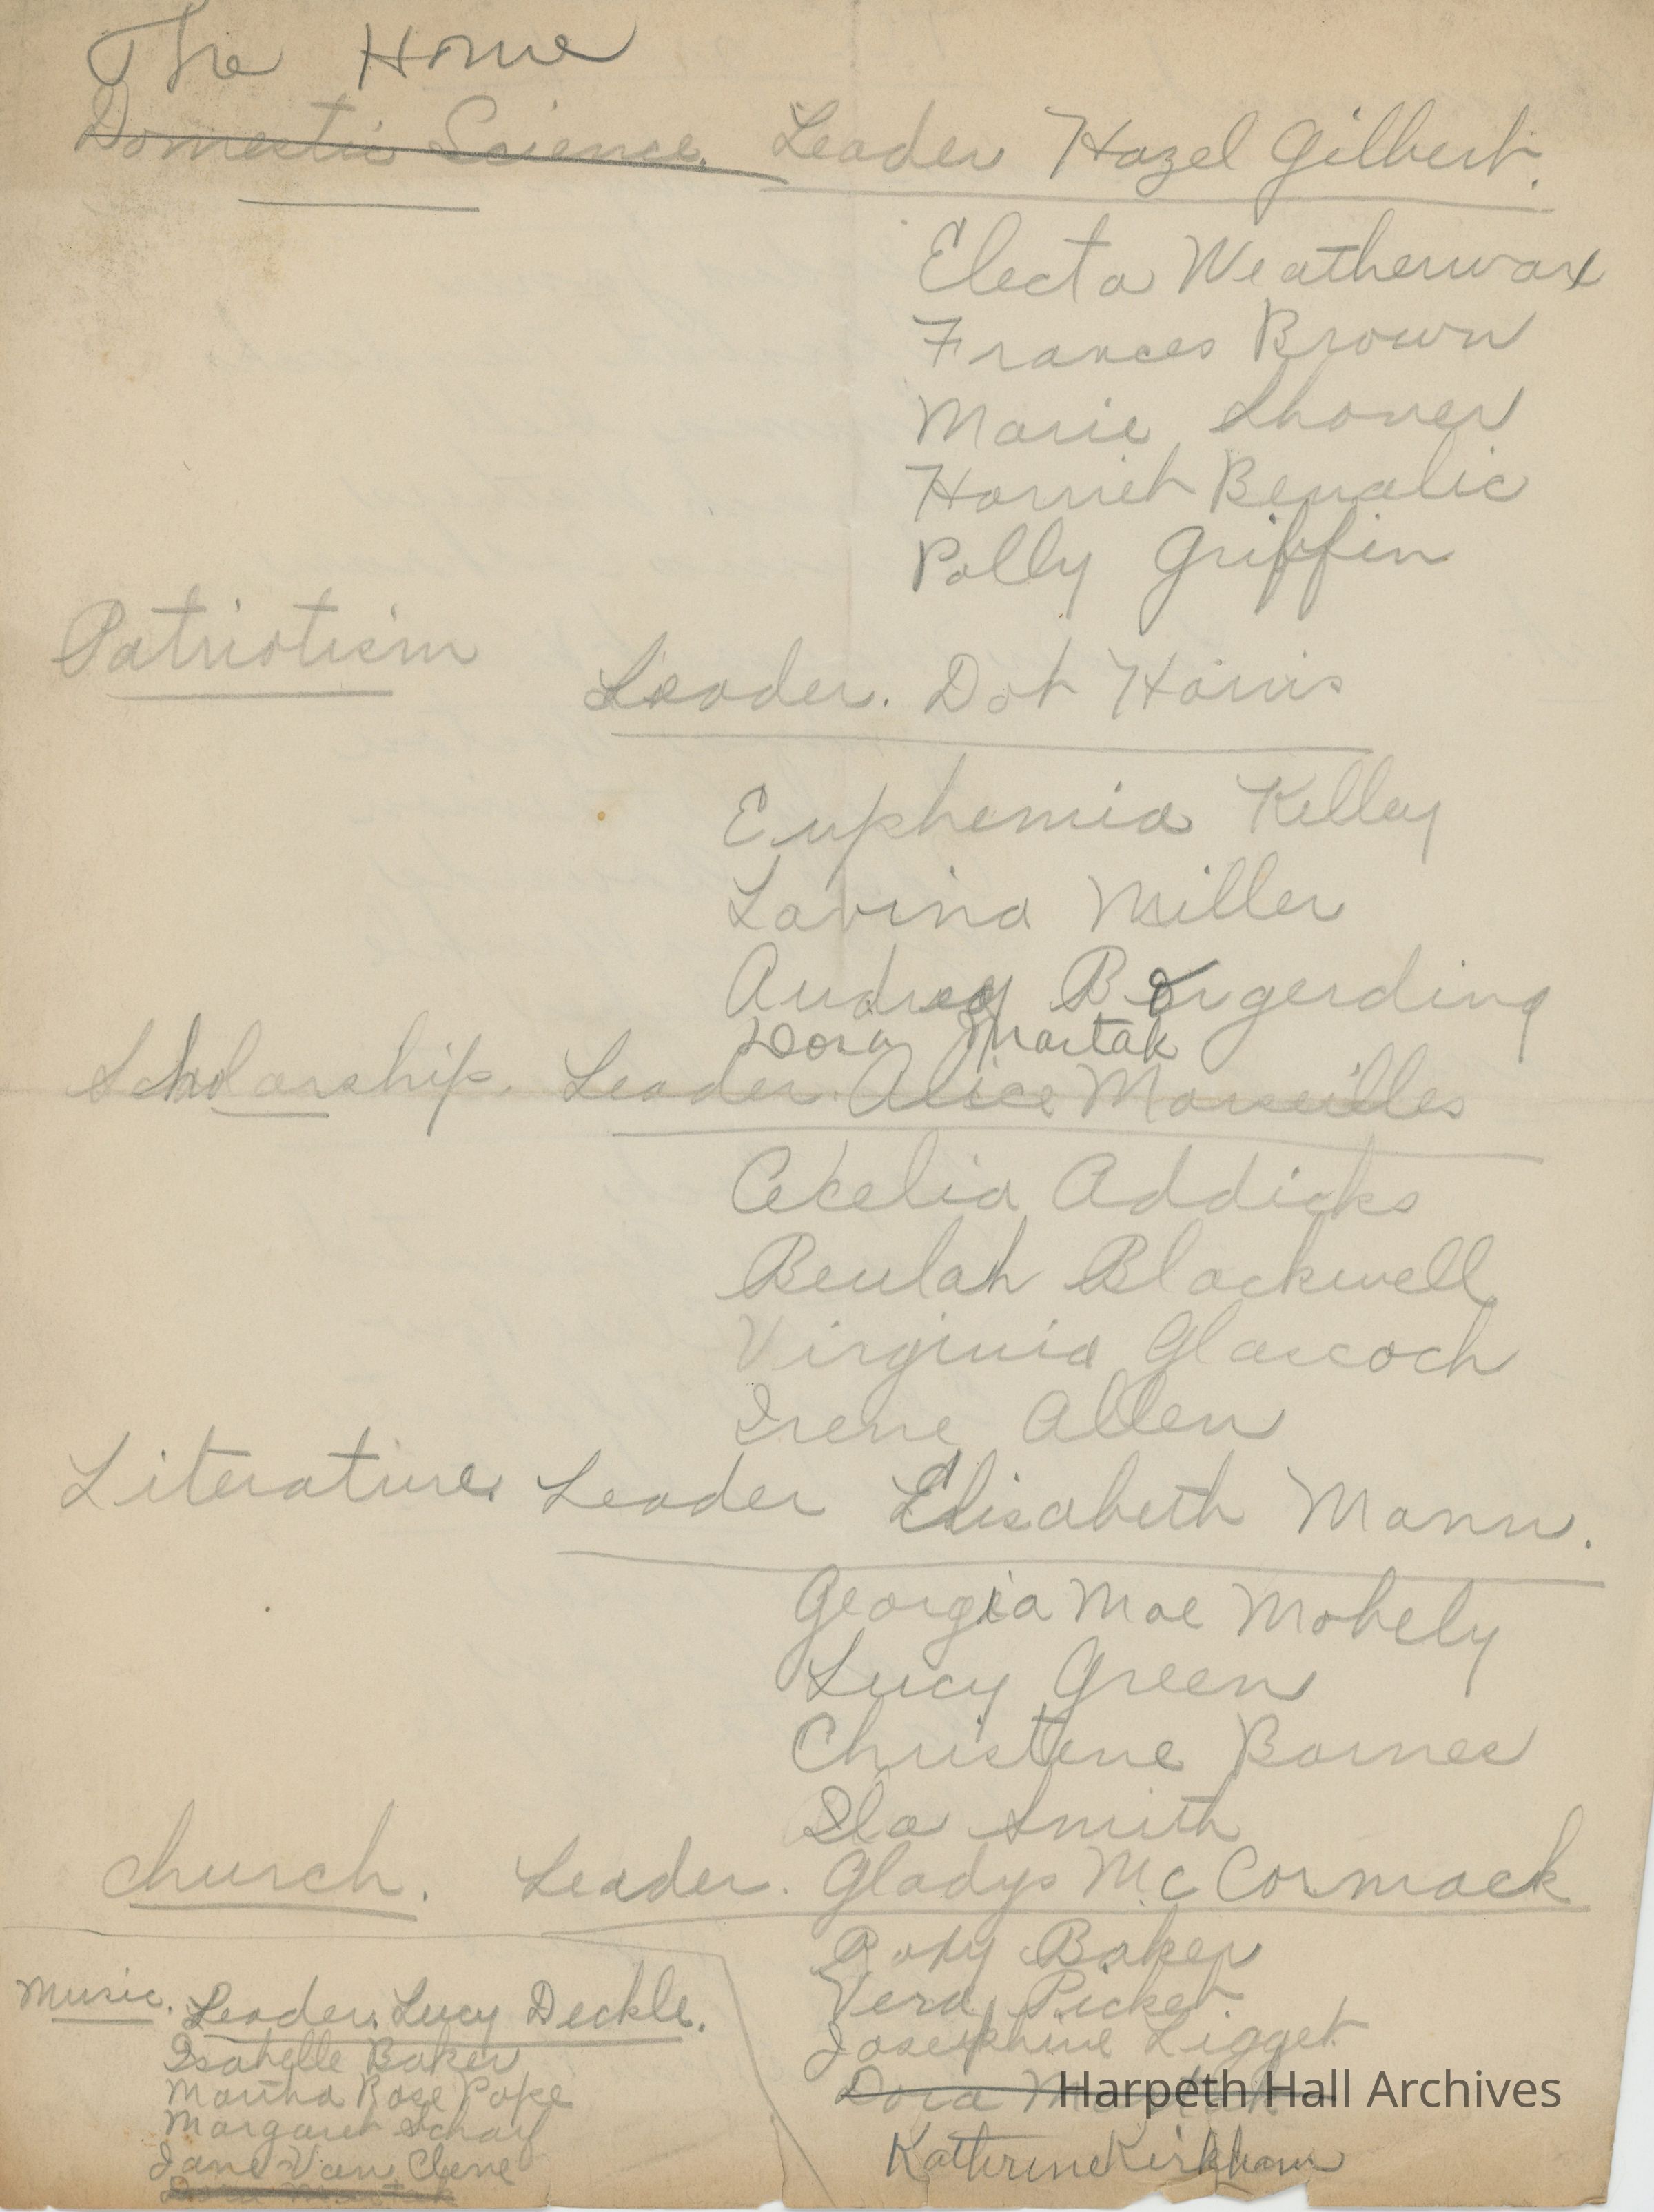 The Home
Domestic Science. Leader Hazel Gilbert.
Electa Weatherwax
Frances Brown
Marie Shover
Harriet
Polly Griffin
Patriotism
Leader. Dot Harris
Euphemia Kelley
Lavina Miller
Audrey Borgerding
Dora Martak
Scholarship. Leader. Alice Marseilles
Cecelia Addicks
Beulah Blackwell
Virginia Glascoch
Irene Allen
Literature. Leader Elisabeth Mann.
Georgia Mae Mobely
Lucy Green
Christene Barnes
Ila Smith
Church. Leader. Gladys McCormack
Roxy Baker
Vera Picket
Josephine Ligget
Dora
Katherine Kirkham
Music. Leader. Lucy Deckle.
Isabelle Baker
Martha Rose Pope
Margaret Scharf
Jane Van Cleve
Dora Martak
Harpeth Hall Archives